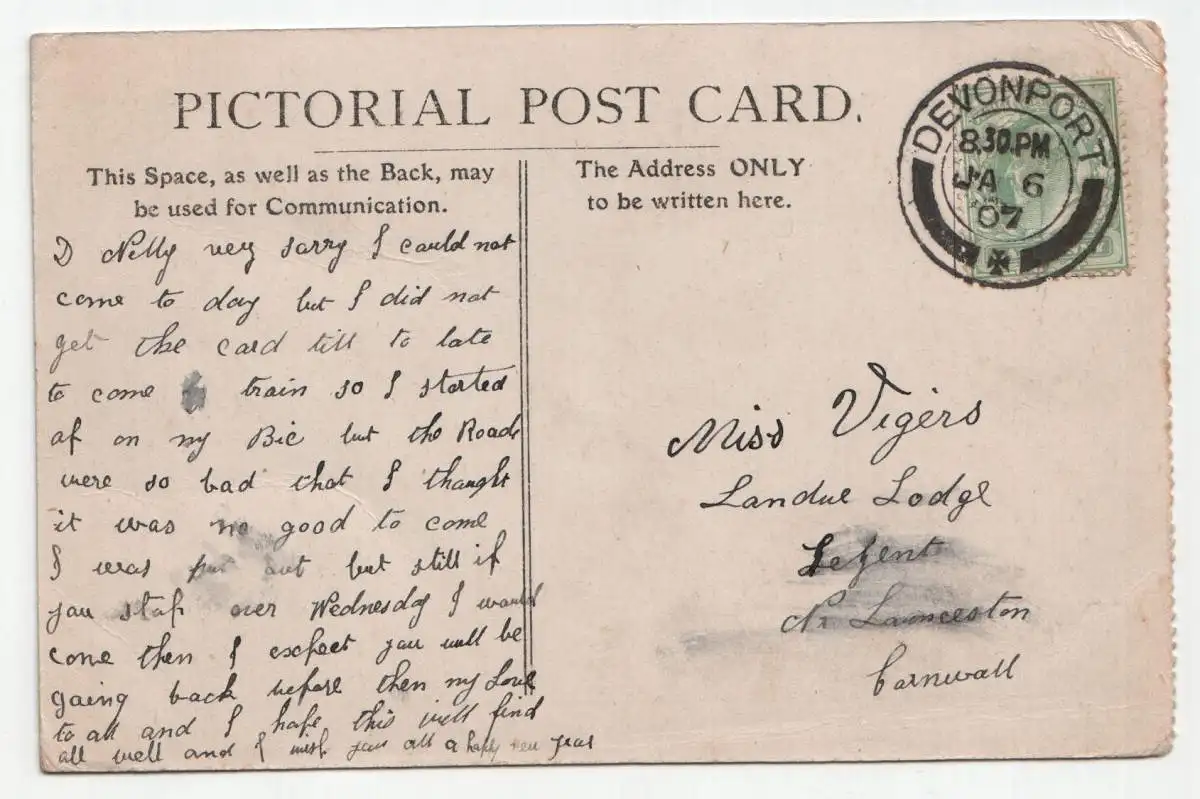 PICTORIAL POST CARD.
This Space, as well as the Back, may
be used for Communication.
The Address ONLY
to be written here.
DEVONPORT
8.30.PM
JA 6
07
D Nelly very sorry I could not
come to day but I did not
get the card till to late
to come train so I started
of on my Bic but the Roads
were so bad that I thought
it was no good to come
I was put out but still if
you stop over Wednesday I would
come then I expect you will be
going back before then my Love
to all and I hope this will find
all well and I wish you all a happy new year
Miss Vigers
Landue Lodge
Lezent
Nr Launceston
Cornwall